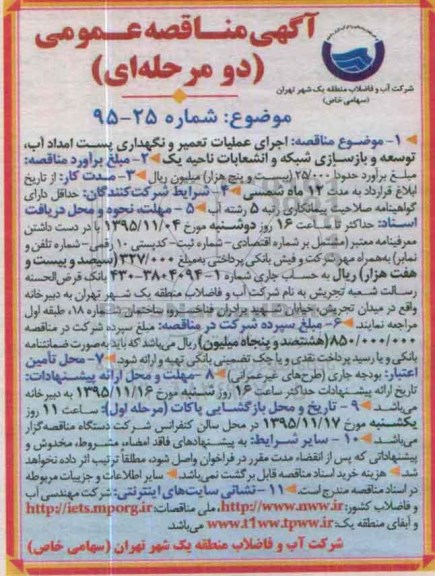 آگهی مناقصه عمومی
(دو مرحله‌ای)
شرکت آب و فاضلاب منطقه یک شهر تهران
(سهامی خاص)
موضوع: شماره ۲۵-۹۵
۱- موضوع مناقصه: اجرای عملیات تعمیر و نگهداری پست امداد آب،
توسعه و بازسازی شبکه و انشعابات ناحیه یک ۲- مبلغ برآورد مناقصه:
مبلغ برآورد حدودا ۲۵/۰۰۰ (بیست و پنج هزار) میلیون ریال ۳- مدت کار: از تاریخ
ابلاغ قرارداد به مدت ۱۲ ماه شمسی ۴- شرایط شرکت‌کنندگان: حداقل دارای
گواهینامه صلاحیت پیمانکاری رتبه ۵ رشته آب ۵- مهلت، نحوه و محل دریافت
اسناد: حداکثر تا ساعت ۱۶ روز دوشنبه مورخ ۱۳۹۵/۱۱/۰۴ با در دست داشتن
معرفینامه معتبر (مشتمل بر شماره اقتصادی- شماره ثبت- کدپستی ۱۰ رقمی- شماره تلفن و
نمابر) به‌همراه مهر شرکت و فیش بانکی پرداختی به‌مبلغ ۳۲۷/۰۰۰ (سیصد و بیست و
هفت هزار) ریال به حساب جاری شماره ۱-۳۸۰۴۰۹۴-۴۳۰ بانک قرض‌الحسنه
رسالت شعبه تجریش به نام شرکت آب و فاضلاب منطقه یک شهر تهران به دبیرخانه
واقع در میدان تجریش، خیابان شهید برادران فناخسرو، ساختمان شماره ۱۸، طبقه اول
مراجعه نمایند. ۶- مبلغ سپرده شرکت در مناقصه: مبلغ سپرده شرکت در مناقصه
۸۵۰/۰۰۰/۰۰۰ (هشتصد و پنجاه میلیون) ریال می‌باشد که باید به صورت ضمانتنامه
بانکی و یا رسید پرداخت نقدی و یا چک تضمینی بانکی تهیه و ارائه شود. ۷- محل تأمین
اعتبار: بودجه جاری (طرح‌های غیرعمرانی) ۸- مهلت و محل ارائه پیشنهادات:
تاریخ ارائه پیشنهادات حداکثر ساعت ۱۶ روز شنبه مورخ ۱۳۹۵/۱۱/۱۶ به دبیرخانه
می‌باشد. ۹- تاریخ و محل بازگشایی پاکات (مرحله اول): ساعت ۱۱ روز
یکشنبه مورخ ۱۳۹۵/۱۱/۱۷ در محل سالن کنفرانس شرکت دستگاه مناقصه‌گزار
می‌باشد. ۱۰- سایر شرایط: به پیشنهادهای فاقد امضاء، مشروط، مخدوش و
پیشنهاداتی که پس از انقضاء مدت مقرر در فراخوان واصل شود، مطلقا ترتیب اثر داده نخواهد
شد. هزینه خرید اسناد مناقصه قابل برگشت نمی‌باشد. سایر اطلاعات و جزییات مربوطه
در اسناد مناقصه مندرج است. ۱۱- نشانی سایت‌های اینترنتی: شرکت مهندسی آب
و فاضلاب کشور: http://www.nww.ir، ملی مناقصات: http://iets.mporg.ir
و آبفای منطقه یک: www.t1ww.tpww.ir می‌باشد.
شرکت آب و فاضلاب منطقه یک شهر تهران (سهامی خاص)